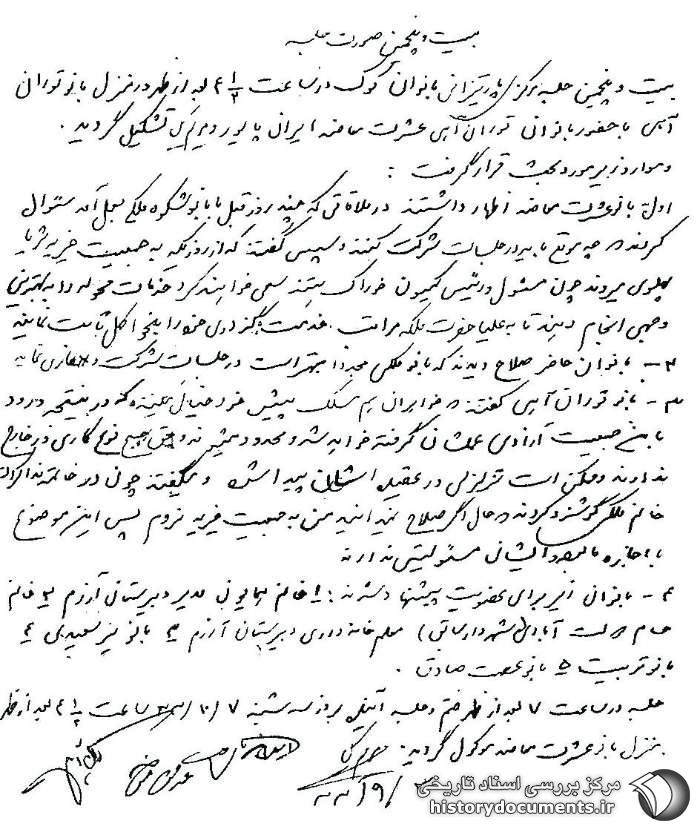 بیست و پنجمین صورت جلسه
بیست و پنجمین جلسه مرکزی بانوان کوک در ساعت ۴ ۱/۲ بعد از ظهر در منزل بانو توران
آهی با حضور بانوان توران آهی عشرت معاضد ایران پالیور و مریم تشکیل گردید.
و موارد زیر مورد بحث قرار گرفت :
اول: بانو عشرت معاضد اظهار داشتند در ملاقاتی که چند روز قبل با بانو شکوه ملکی بعمل آمد سئوال
کردند که چه موقع باید در جلسات شرکت کنند و سپس گفتند که از روزیکه به جمعیت خیریه ثریا
پهلوی میروند چون مسئول و رئیس کمیسیون خوراک هستند سعی خواهند کرد خدمات محوله را به بهترین
وجهی انجام دهند تا به علیاحضرت ملکه مراتب خدمت خود را بنحو اکمل ثابت نمایند
۲ـ بانوان حاضر صلاح دیدند که بانو ملکی مجدداً بهتر است در جلسات شرکت و نماید
۳ـ بانو توران آهی گفتند که خواهران هم مسلک پیش خود خیال میکنند که در نتیجه ورود
باین جمعیت آزادی عملشان گرفته خواهد شد و محدود میشوند و حق هیچ نوع کاری در خارج
ندارند و ممکن است تزلزلی در عقیده ایشان پیدا شود و میگفتند چون در خاتمه مذاکرات
خانم ملکی گوشزد کردند که حال اگر صلاح نمیدانید من به جمعیت خیریه نروم پس این موضوع
با اجازه ما بوده و ایشان مسئولیتی ندارند
۴ـ بانوانی زیر برای عضویت پیشنهاد شدند: ۱ خانم همایونی مدیر دبیرستان آزرم ۲ خانم
دولت آبادی (شهردار سابق) معلم خانه داری دبیرستان آزرم ۳ بانو نیر سعیدی ۴
بانو تربیت ۵ بانو عصمت صادق.
جلسه در ساعت ۷ بعد از ظهر ختم و جلسه آتیه بروز سه شنبه ۷/۱۰/ ساعت ۴ ۱/۲ بعد از ظهر
بمنزل بانو عشرت معاضد موکول گردید.
مرکز بررسی اسناد تاریخی
historydocuments.ir